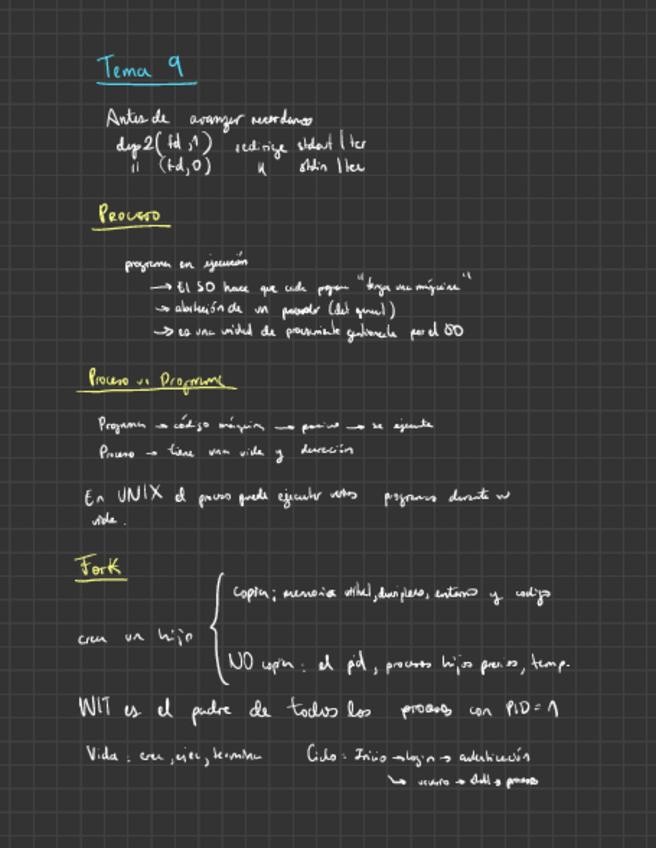 Tema 9
Antes de avanzar recordamos
dup2(fd,1) redirige stdout | ter
" (fd,0) " stdin | ter
Proceso
programa en ejecución
→ El SO hace que cada program "tenga una máquina"
→ abstracción de un procesador (del general)
→ es una unidad de procesamiento gestionada por el SO
Proceso vs Programa
Programa → código máquina → pasivo → se ejecuta
Proceso → tiene una vida y duración
En UNIX el proceso puede ejecutar varios programas durante su
vida.
Fork
crea un hijo
Copia: memoria virtual, entorno y codigo
NO copia: el pid, procesos hijos previos, temp.
INIT es el padre de todos los procesos con PID = 1
Vida: crea, ejec, termina Ciclo: Inicio → login → autenticación
↳ usuario → shell → procesos